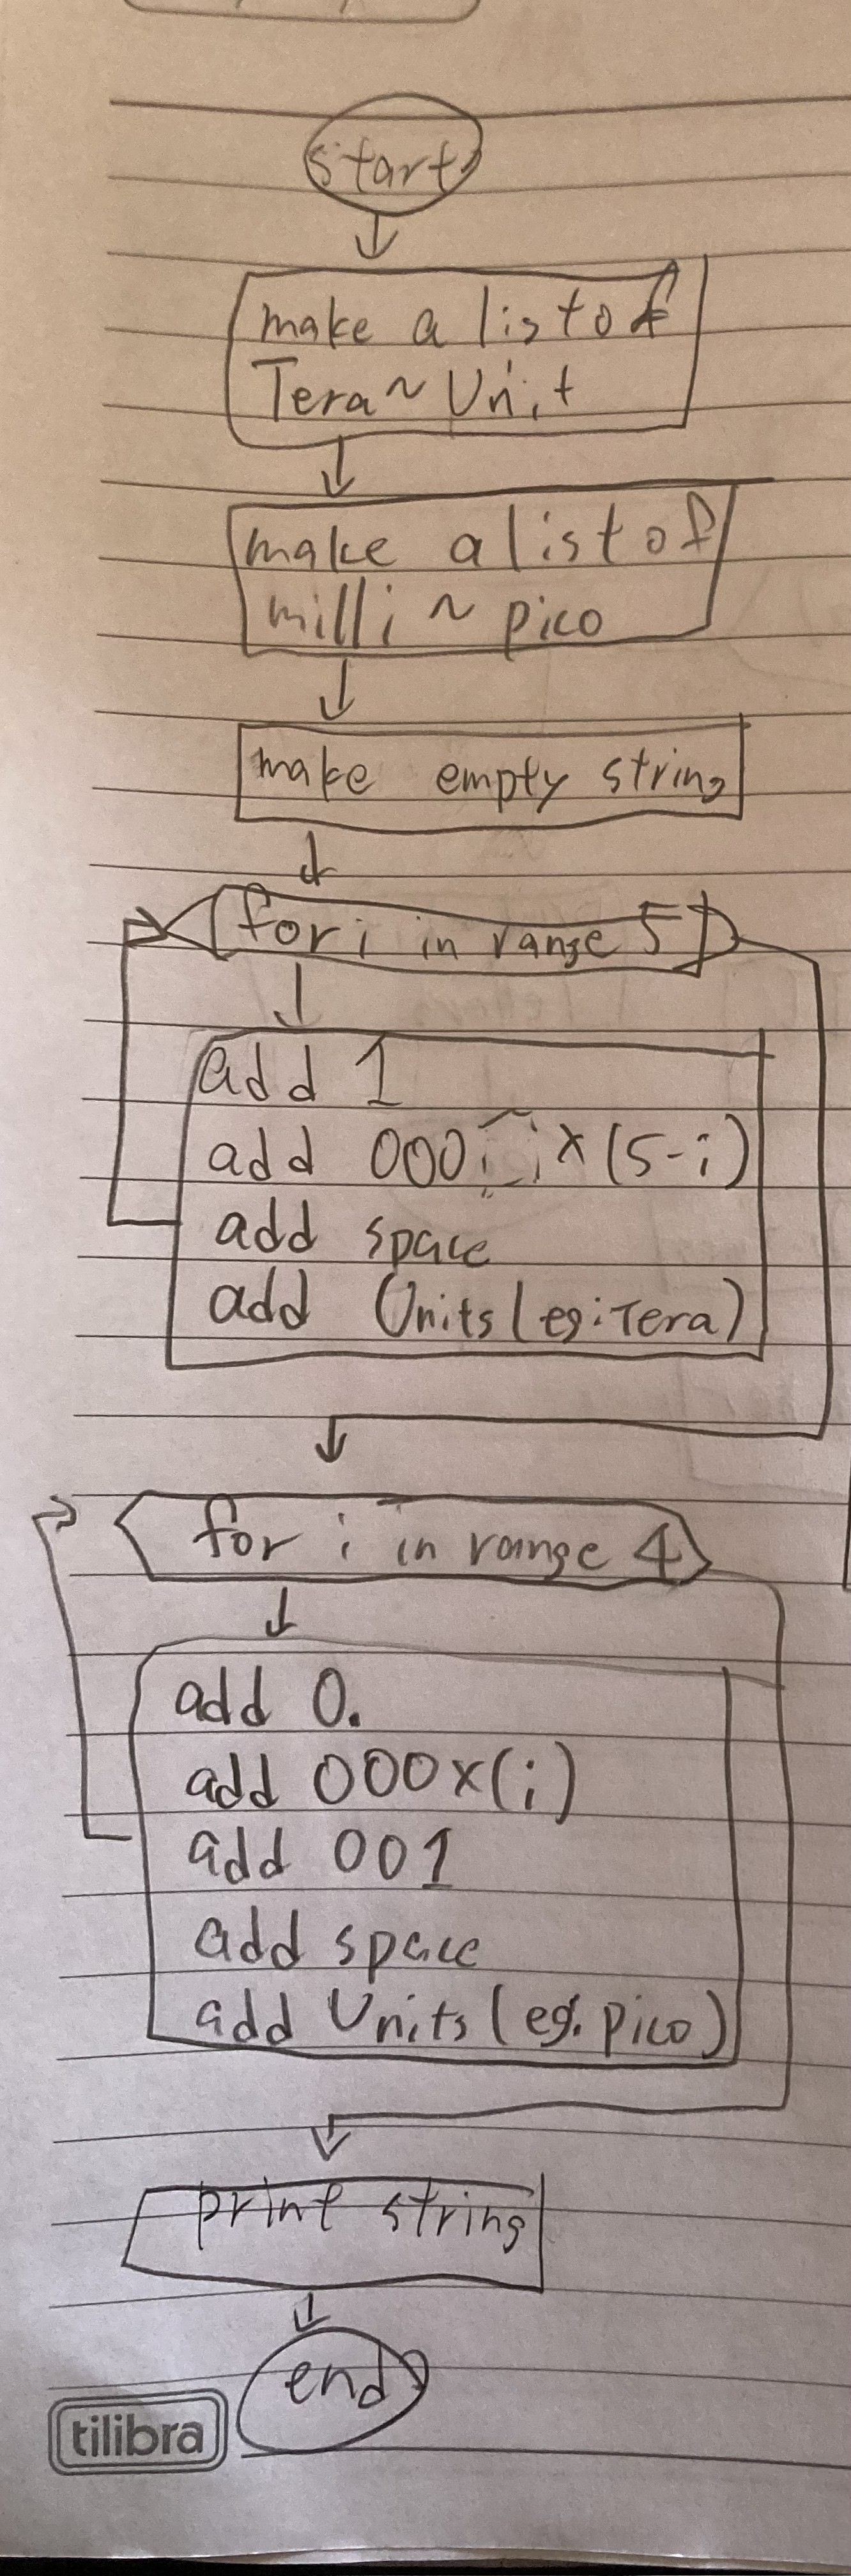 start
make a list of
Tera ~ Unit
make a list of
milli ~ pico
make empty string
for i in range 5
add 1
add 000 x (5-i)
add space
add Units (eg: Tera)
for i in range 4
add 0.
add 000 x (i)
add 001
add space
add Units (eg. pico)
print string
end
tilibra